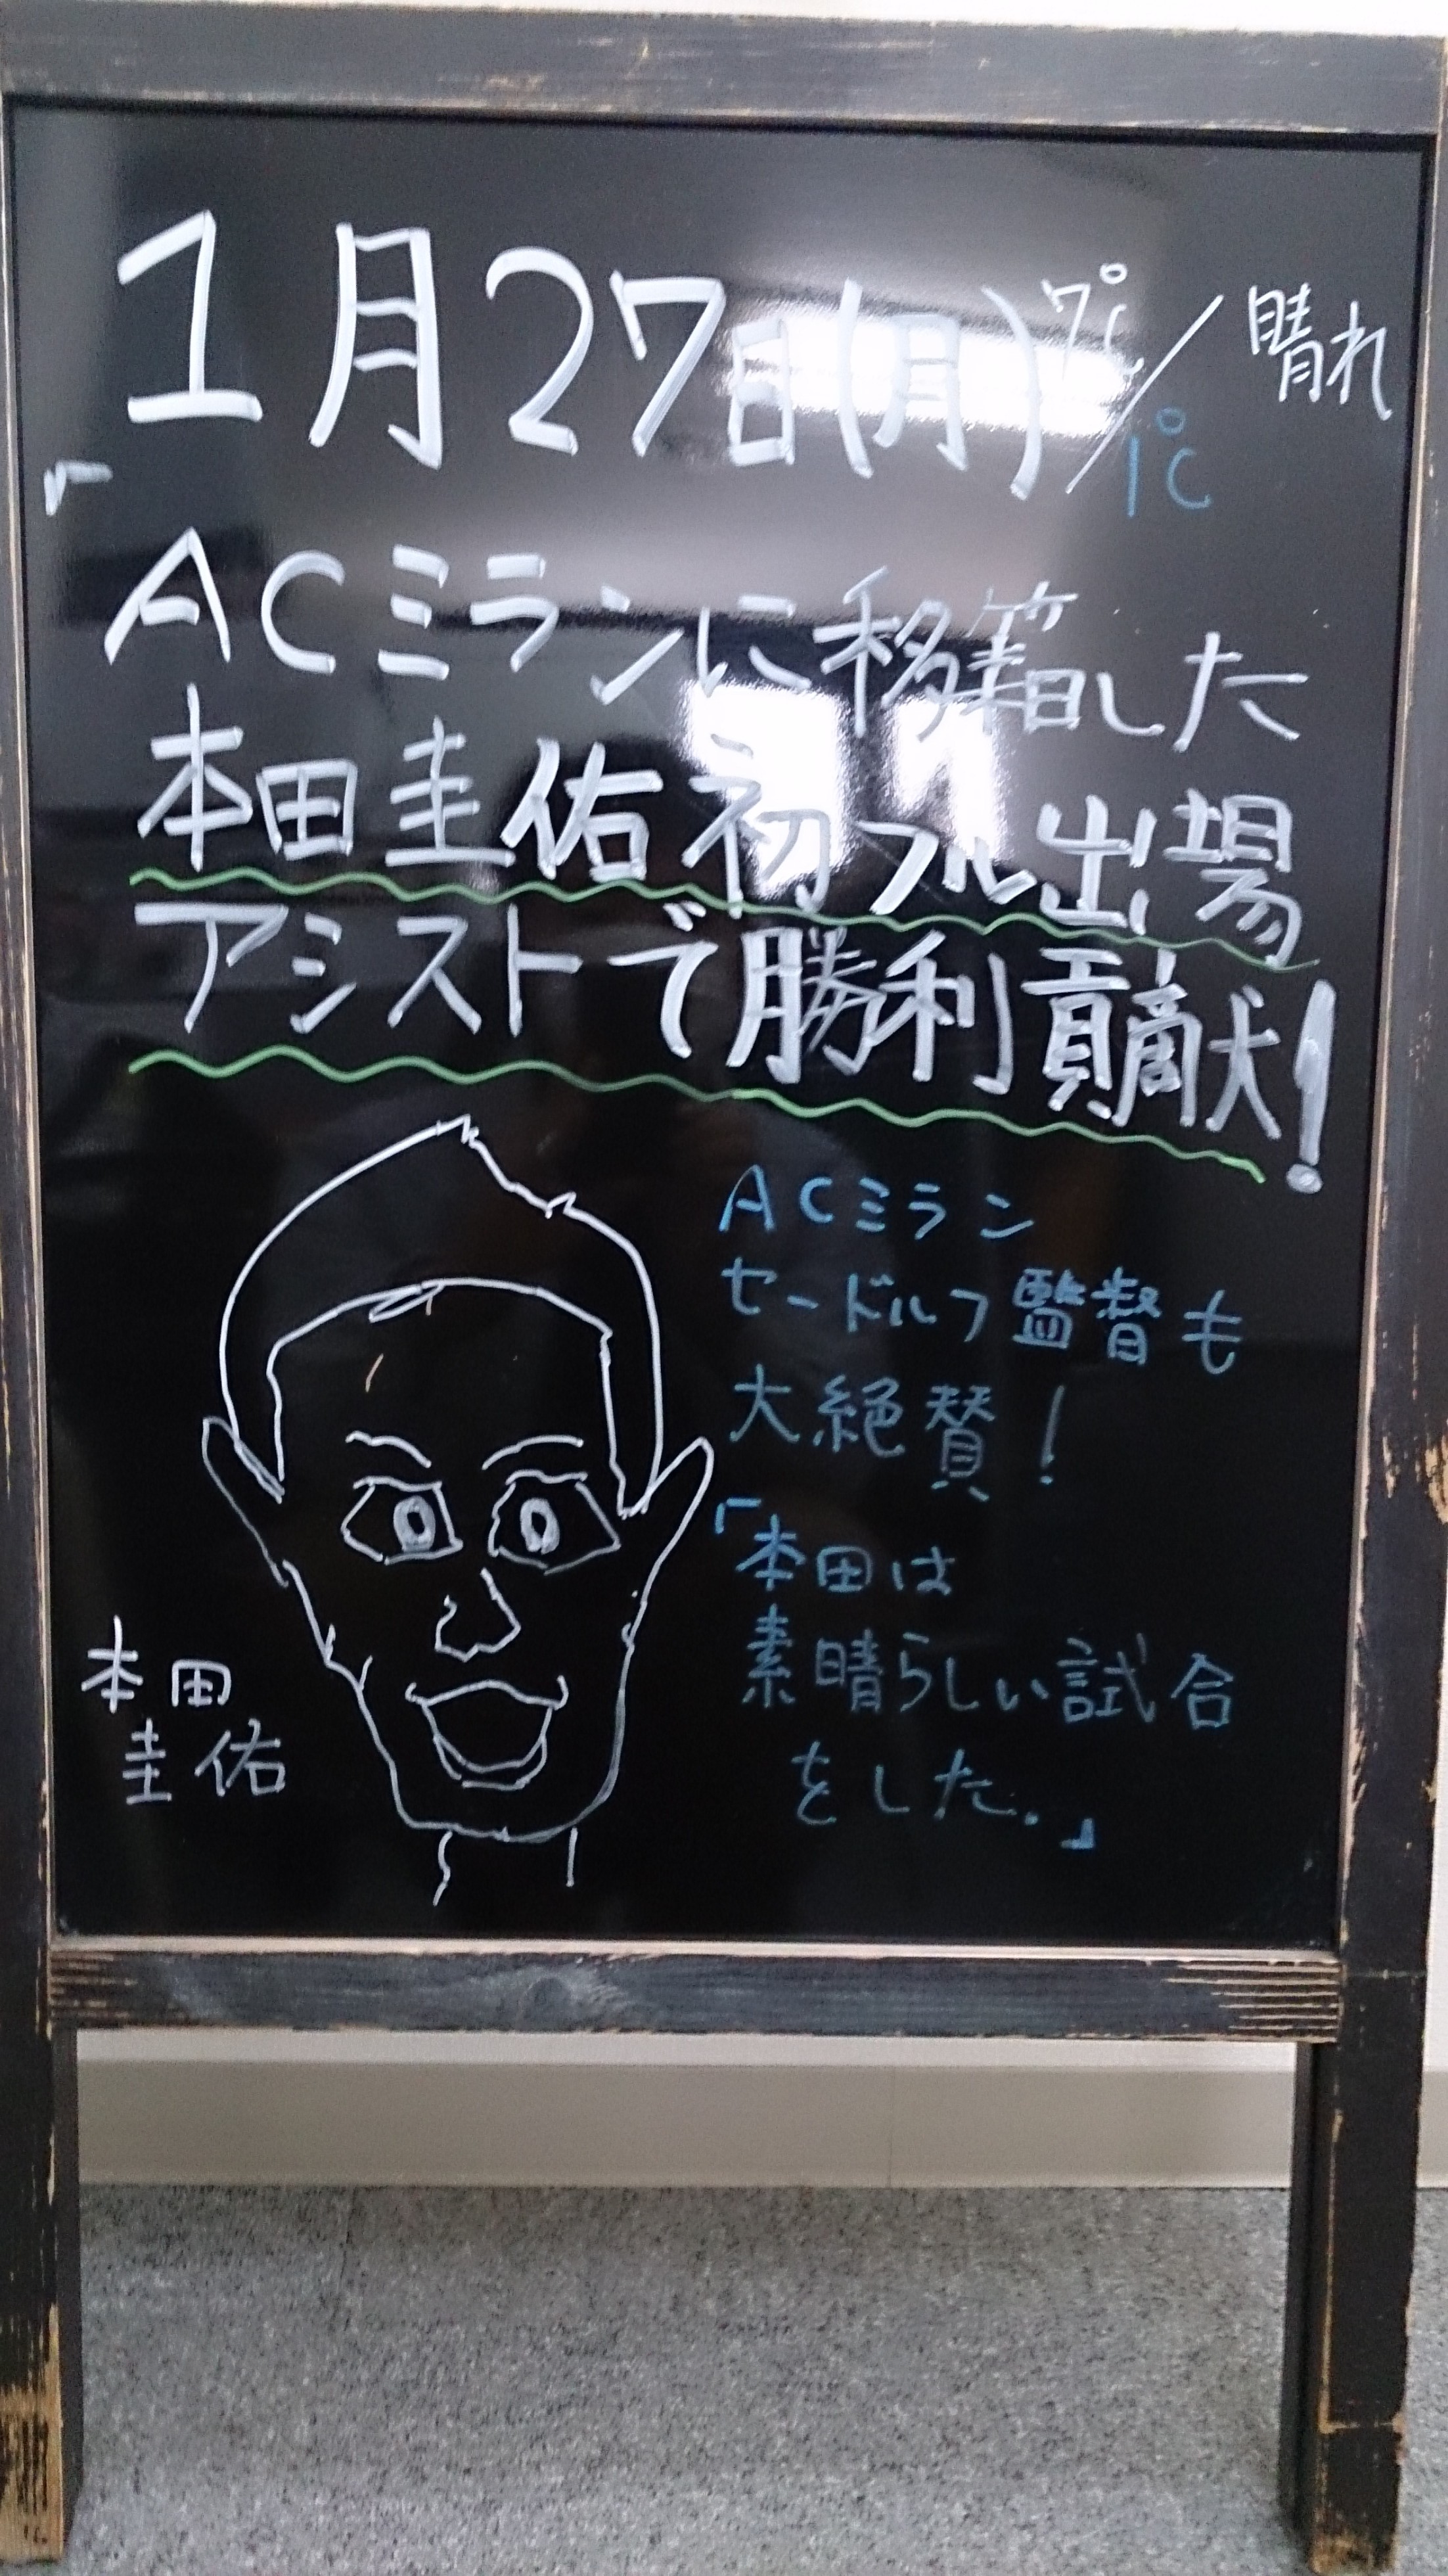 1月27日(月) 7℃/1℃ 晴れ
「
ACミランに移籍した
本田圭佑初フル出場
アシストで勝利貢献!
ACミラン
セードルフ監督も
大絶賛!
「本田は
素晴らしい試合
をした.」
本田
圭佑